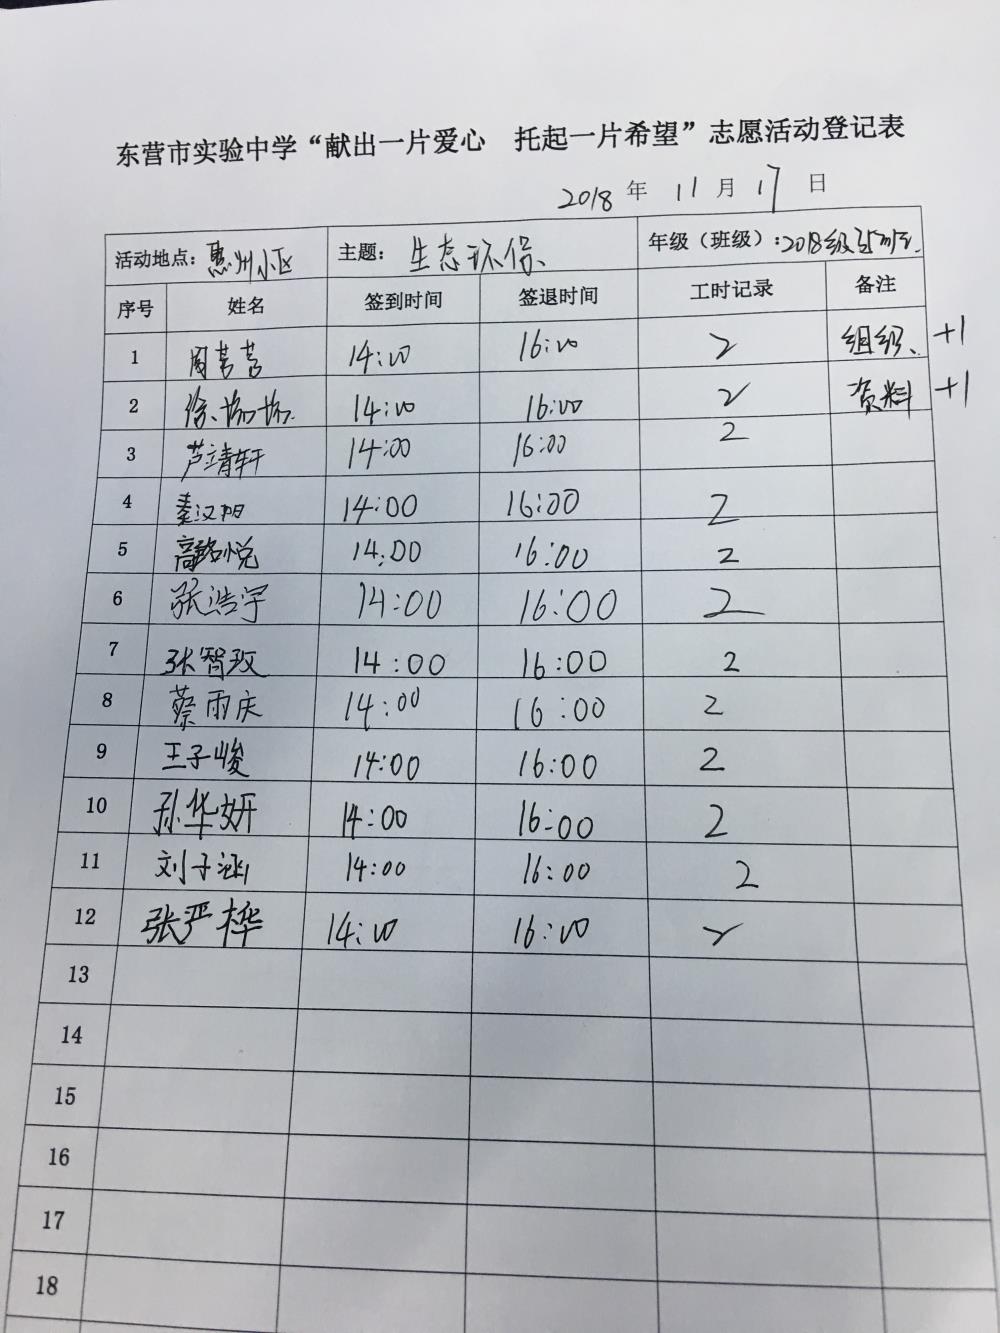 东营市实验中学“献出一片爱心 托起一片希望”志愿活动登记表
2018 年 11 月 17 日
活动地点：惠州小区 主题：生态环保 年级（班级）：2018级
序号 姓名 签到时间 签退时间 工时记录 备注
1 周营营 14:00 16:00 2 组织 +1
2 徐 14:00 16:00 2 资料 +1
3 芦靖轩 14:00 16:00 2
4 秦汉阳 14:00 16:00 2
5 高路悦 14:00 16:00 2
6 张浩宇 14:00 16:00 2
7 张智玫 14:00 16:00 2
8 蔡雨庆 14:00 16:00 2
9 王子峻 14:00 16:00 2
10 孙华妍 14:00 16:00 2
11 刘子涵 14:00 16:00 2
12 张严桦 14:00 16:00 2
13
14
15
16
17
18